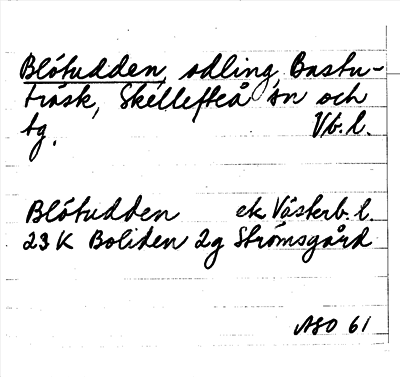 Blötudden, odling, Bastu-
träsk, Skellefteå sn och
tg. Vb. l.
Blötudden ek Västerb. l.
23 K Boliden 2g Strömsgård
ASO 61